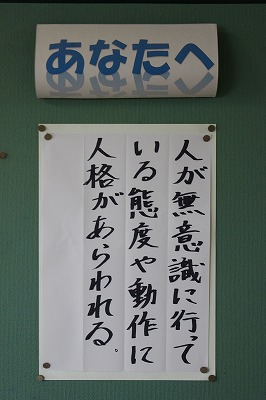 あなたへ
人が無意識に行って
いる態度や動作に
人格があらわれる。